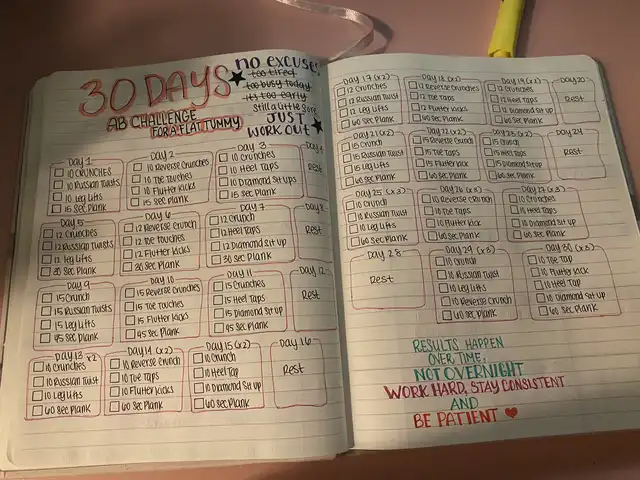 30 DAYS
AB CHALLENGE
FOR A FLAT TUMMY
no excuses
too tired
too busy today
it's too early
still a little sore
JUST
WORK OUT
Day 1
10 CRUNCHES
10 Russian Twists
10 Leg Lifts
15 Sec Plank
Day 2
10 Reverse Crunches
10 Toe touches
10 Flutter Kicks
15 Sec Plank
Day 3
10 Crunches
10 Heel Taps
10 Diamond Sit ups
15 Sec Plank
Day 4
Rest
Day 5
12 Crunches
12 Russian Twists
12 Leg Lifts
30 Sec Plank
Day 6
12 Reverse Crunch
12 Toe touches
12 Flutter Kicks
30 Sec Plank
Day 7
12 Crunch
12 Heel Taps
12 Diamond Sit up
30 Sec Plank
Day
Rest
Day 9
15 Crunch
15 Russian Twists
15 Leg Lifts
45 Sec Plank
Day 10
15 Reverse Crunches
15 Toe Touches
15 Flutter Kicks
45 Sec Plank
Day 11
15 Crunches
15 Heel Taps
15 Diamond Sit up
45 Sec Plank
Day 12
Rest
Day 13 x2
10 Crunches
10 Russian Twist
10 Leg Lifts
60 Sec Plank
Day 14 (x2)
10 Reverse Crunch
10 Toe Taps
10 Flutter Kicks
60 Sec Plank
Day 15 (x2)
10 Crunch
10 Heel Tap
10 Diamond Sit up
60 Sec Plank
Day 16
Rest
Day 17 (x2)
12 Crunches
12 Russian Twist
12 Leg Lifts
60 Sec Plank
Day 18 (x2)
12 Reverse Crunches
12 Toe Taps
12 Flutter Kicks
60 Sec Plank
Day 19 (x2)
12 Crunches
12 Heel Taps
12 Diamond Sit up
60 Sec Plank
Day 20
Rest
Day 21 (x2)
15 Crunch
15 Russian Twist
15 Leg Lifts
60 Sec Plank
Day 22 (x2)
15 Reverse Crunch
15 Toe Taps
15 Flutter Kick
60 Sec Plank
Day 23 (x2)
15 Crunch
15 Heel Taps
15 Diamond Sit up
60 Sec Plank
Day 24
Rest
Day 25 (x3)
10 Crunch
10 Russian Twist
10 Leg Lift
60 Sec Plank
Day 26 (x3)
10 Reverse Crunch
10 Toe Taps
10 Flutter Kick
60 Sec Plank
Day 27 (x3)
10 Crunch
10 Heel Taps
10 Diamond Sit up
60 Sec Plank
Day 28
Rest
Day 29 (x3)
10 Crunch
10 Russian Twist
10 Leg Lifts
10 Reverse Crunch
60 Sec Plank
Day 30 (x3)
10 Toe Tap
10 Flutter Kick
10 Heel Tap
10 Diamond Sit up
60 Sec Plank
RESULTS HAPPEN
OVER TIME,
NOT OVERNIGHT
WORK HARD, STAY CONSISTENT
AND
BE PATIENT